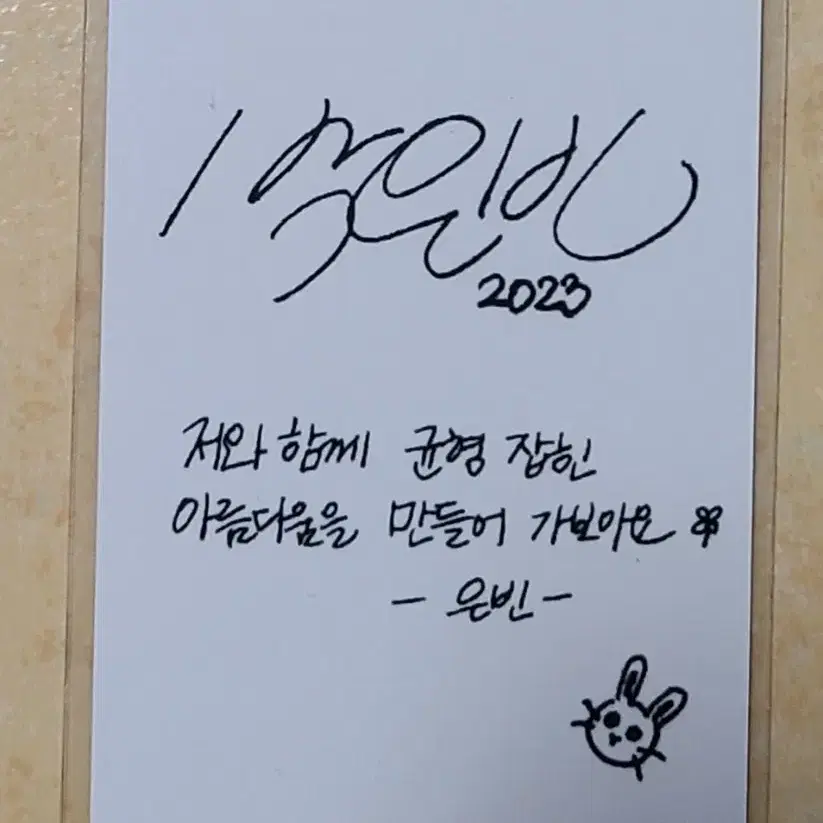 박은빈
2023
저와 함께 균형 잡힌
아름다움을 만들어 가보아요
- 은빈 -